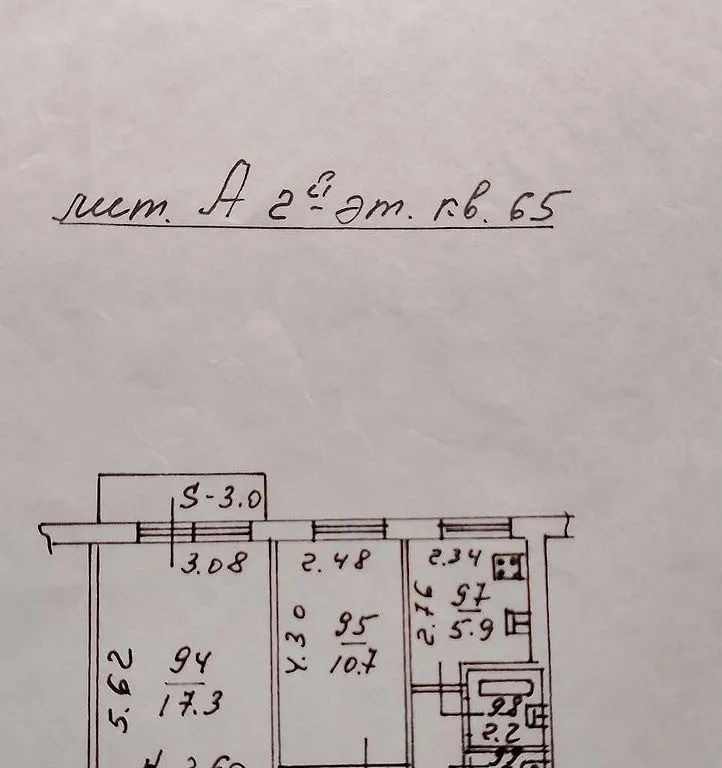 лит. А 2й эт. кв. 65
S-3.0
3.08
2.48
2.34
2.76
97
5.9
4.30
95
10.7
5.62
94
17.3
98
2.2